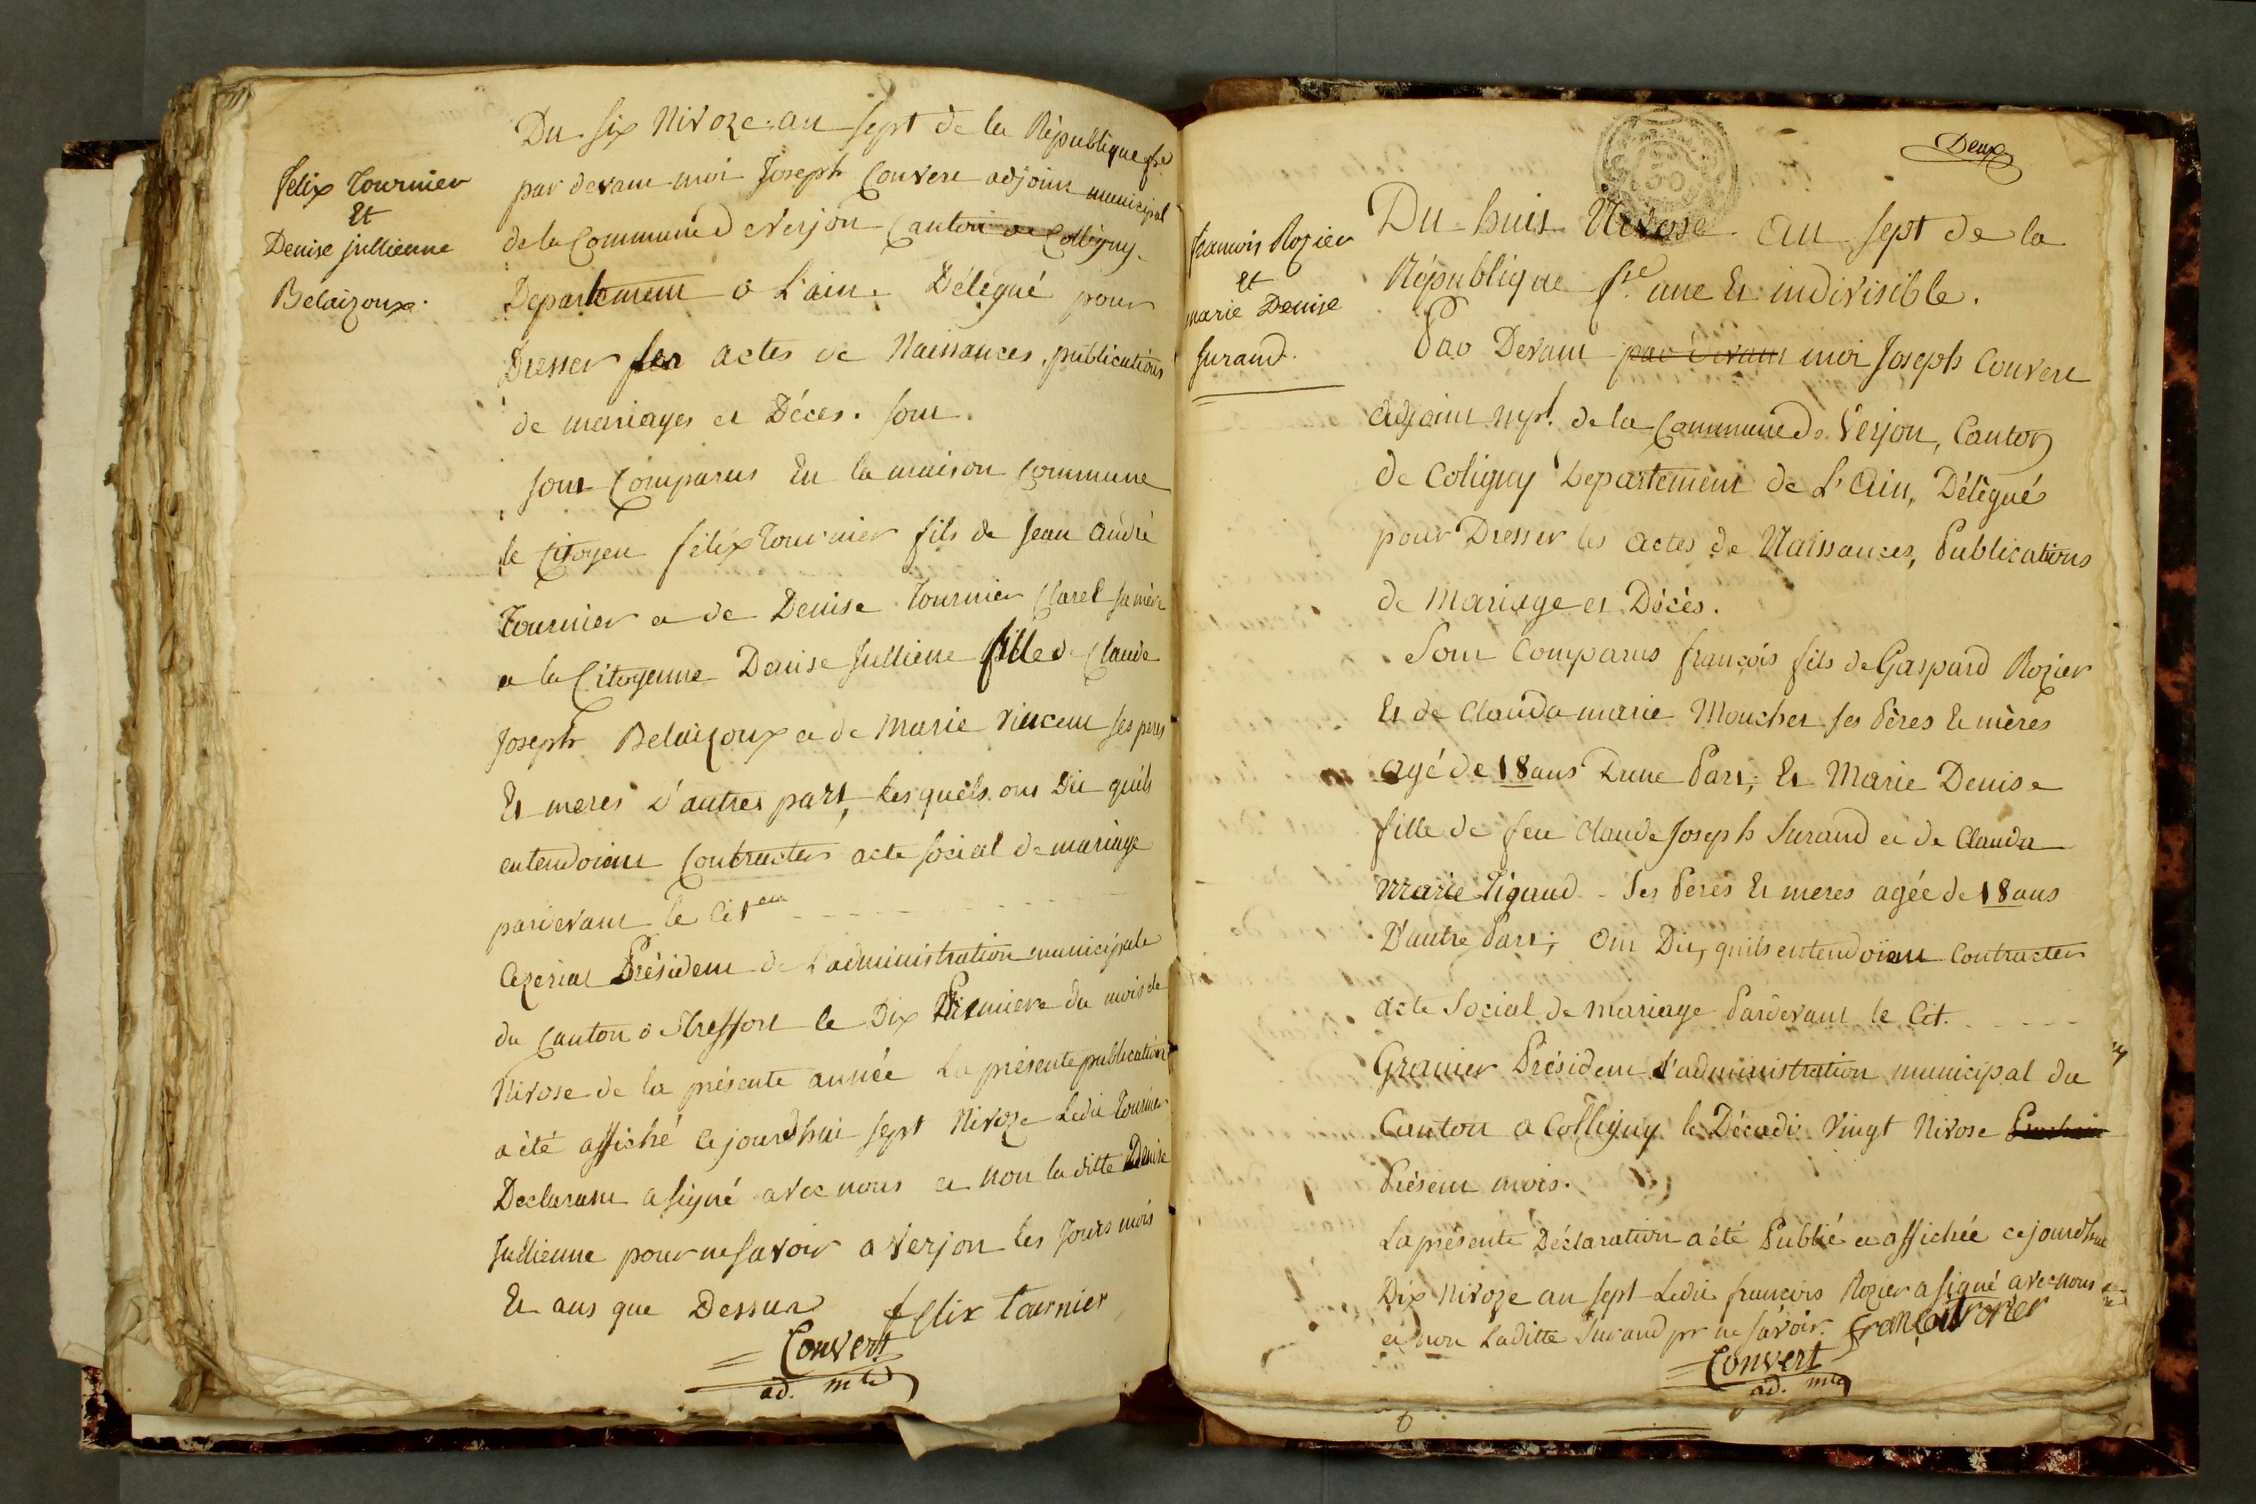 felix Tournier
Et
Denise jullienne
Belaizoux.
Du six Nivoze an sept de la Republique fse
par devant moi Joseph Convert adjoint municipal
de la Commune de Verjon Canton de Colligny
Departement de L'ain. Délégué pour
Dresser les actes de Naissances, publications
de mariages et Déces. sont
sont Comparus En la maison Commune
le Citoyen félix Tournier fils de Jean andré
Tournier et de Denise Tournier Clarel sa mère
et la Citoyenne Denise Jullienne fille de Claude
Joseph Belaizoux et de Marie Vincent ses peres
Et meres D'autres part, Lesquels ont Dit qu'ils
entendoient Contracter acte social de mariage
pardevant le Citen
Cezeriat Président de L'administration municipale
du Canton de Treffort le Dix Primiere du mois de
Nivose de la présente année La présente publication
a été affiché Cejourdhui sept Nivoze Ledit Tournier
Declarant a signé avec nous et non laditte Denise
Jullienne pour ne savoir a Verjon les Jours mois
Et ans que Dessus felix tournier
Convert
ad. mal
Deux
francois Rozier
et
marie Denise
Surand.
Du huit Nivose an sept de la
République fse une Et indivisible.
Par Devant par devant moi Joseph Convert
adjoint mpl. de la Commune de Verjon, Canton
de Coligny Departement de L'Ain, Délégué
pour Dresser les actes de Naissances, Publications
de Mariage et Décès.
Sont Comparus françois fils de Gaspard Rozier
Et de Clauda marie Mouchet ses Pères Et mères
agé de 18 ans D'une Part; Et Marie Denise
fille de feu Claude Joseph Surand et de Clauda
Marie Pigaud - Ses Peres Et meres agée de 18 ans
D'autre Part; Ont Dit, quils entendoient Contracter
acte Social de mariage Pardevant le Cit.
Granier Président L'administration municipal du
Canton de Colligny le Décadi Vingt Nivose Prochain
Présent mois.
La présente Déclaration a été Publié et affichée cejourdhui
Dix Nivoze an sept Ledit francois Rozier a signé avec nous
et non Laditte Surand pr ne savoir. francoit rozier
Convert
ad. mal